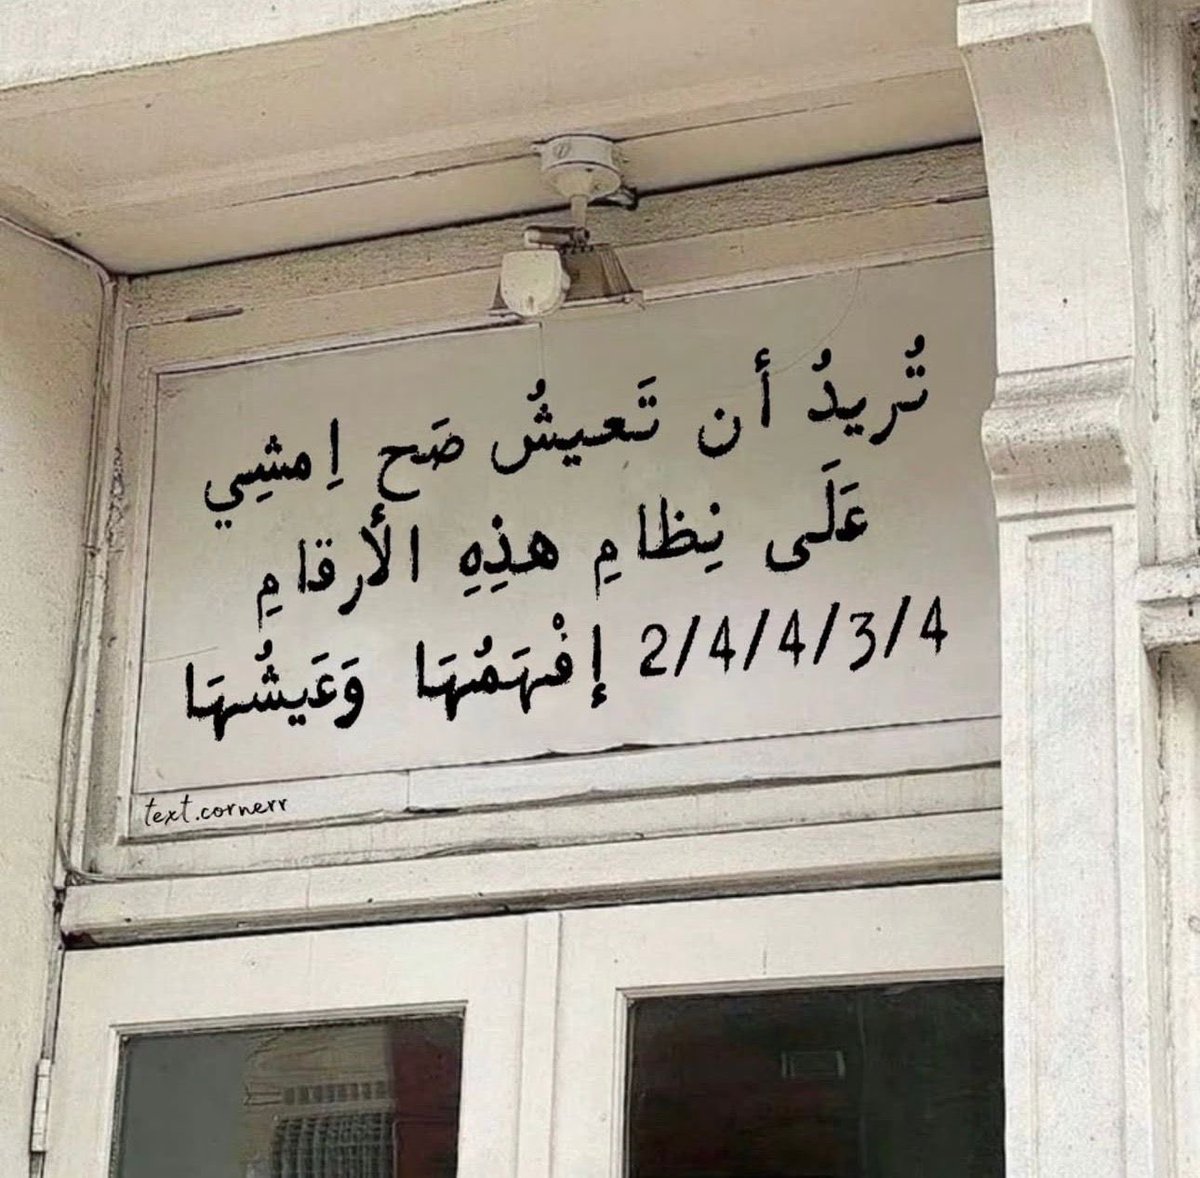 تُريدُ أن تَعيشُ صَح اِمشِي
عَلَى نِظامِ هذِهِ الأرقامِ
2/4/4/3/4 إفْهَمُهَا وَعَيشُهَا
text.cornerr